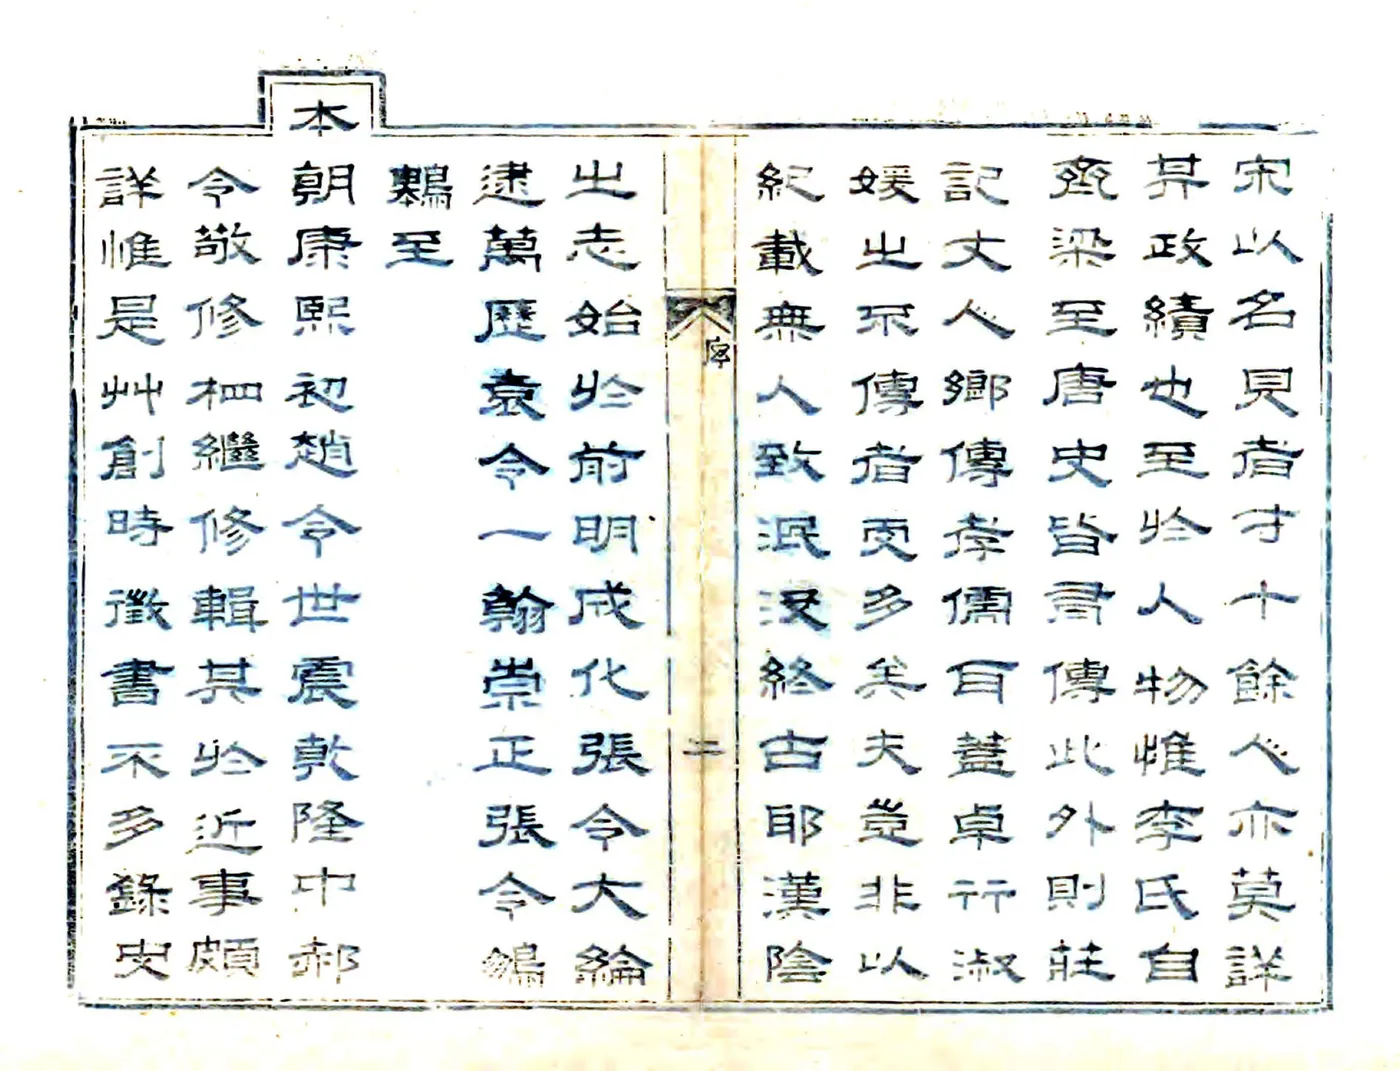 宋以名見者才十餘人亦莫詳
其政績也至於人物惟李氏自
齊梁至唐史皆有傳此外則莊
記丈人鄉傳孝儒百蓋卓行淑
媛之不傳者更多矣夫豈非以
紀載無人致泯沒終古耶漢陰
序
二
之志始於前明成化張令大綸
逮萬歷袁令一翰崇正張令鵷
鷞至
本
朝康熙初趙令世震乾隆中郝
令敬修相繼修輯其於近事頗
詳惟是艸創時徵書不多錄史